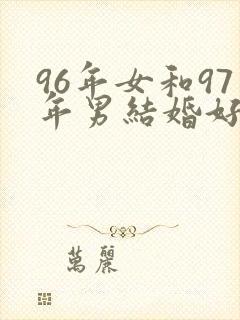 96年女和97
年男結婚好
萬麗